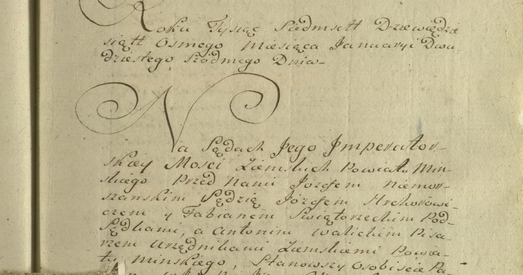 Roku Tysiąc Siedmsett Dziewiędzie
siątt Osmego Miesiąca Januaryi Dwu
dziestego Siodmego Dnia
Na Sądach Jego Imperator-
skiey Mosci Ziemskich Powiatu Min-
skiego Przed Nami Jozefem
Sędzią Jozefem
y Fabianem Swiątorzeckim Pod-
Sędkami, a Antonim Walickim Pisa-
rzem Urzędnikami Ziemskiemi Powia-
tu Minskiego, Stanowszy Osobiscie Pa